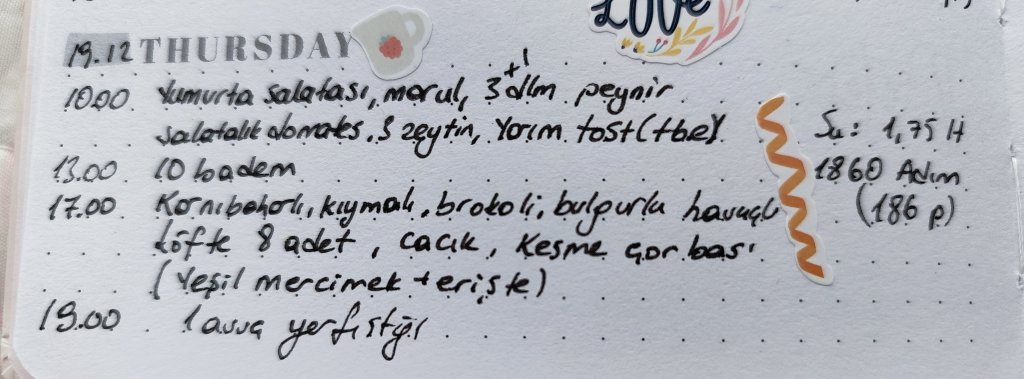 Love
19.12 THURSDAY
10.00 Yumurta salatası, marul, 3+1 dlm peynir
salatalık domates. 5 zeytin, Yarım tost (tbe)
13.00 10 badem
17.00 Karnıbaharlı, kıymalı, brokoli, bulgurlu havuçlu
köfte 8 adet, cacık, Kesme çorbası
(Yeşil mercimek + erişte)
19.00 1 avuç yerfıstığı
Su: 1,75 lt
1860 Adım
(186 p)